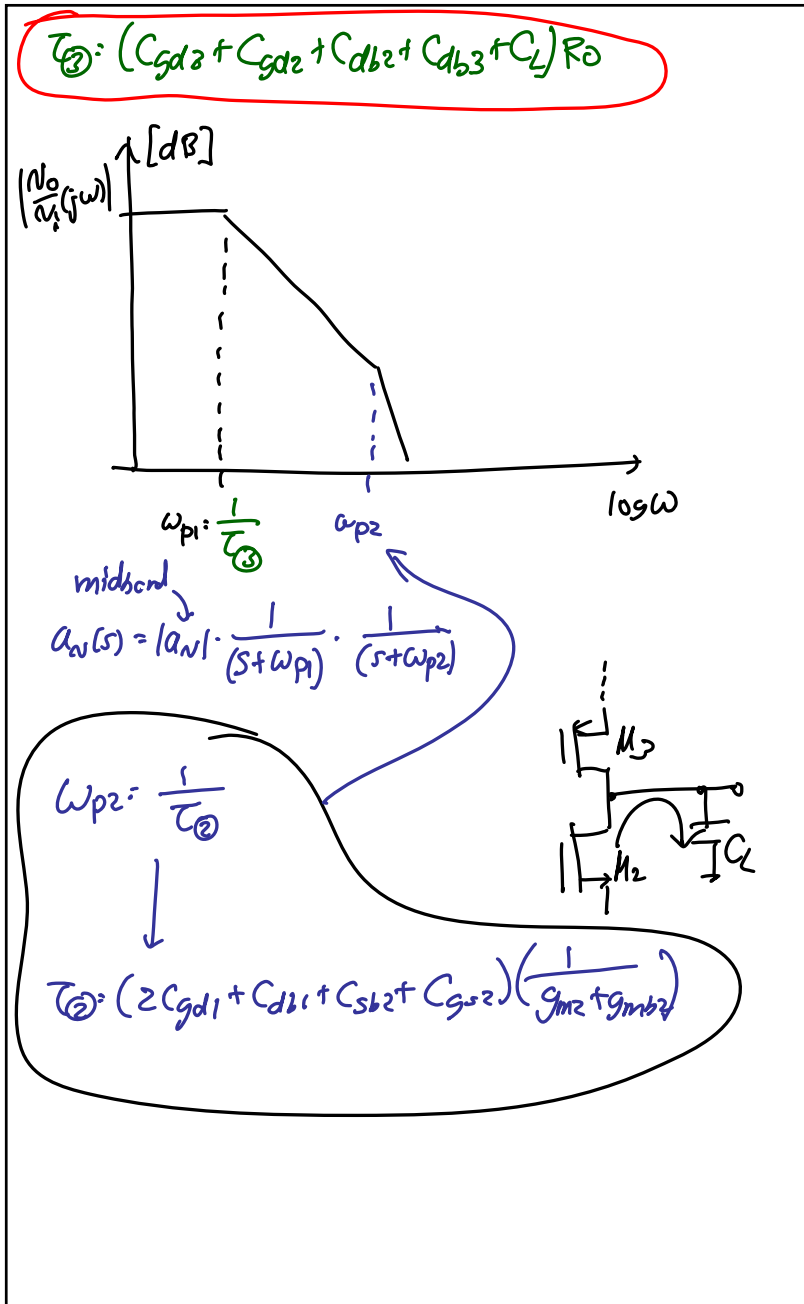 τ③: (Cgd3 + Cgd2 + Cdb2 + Cdb3 + CL) Ro
[dB]
|No/Ni (jω)|
log ω
ωp1: 1/τ③
ωp2
midband
av(s) = |av| · 1/(s+ωp1) · 1/(s+ωp2)
M3
ωp2: 1/τ②
M2
CL
τ②: (2Cgd1 + Cdb1 + Csb2 + Cgs2)(1/(gm2 + gmb2))